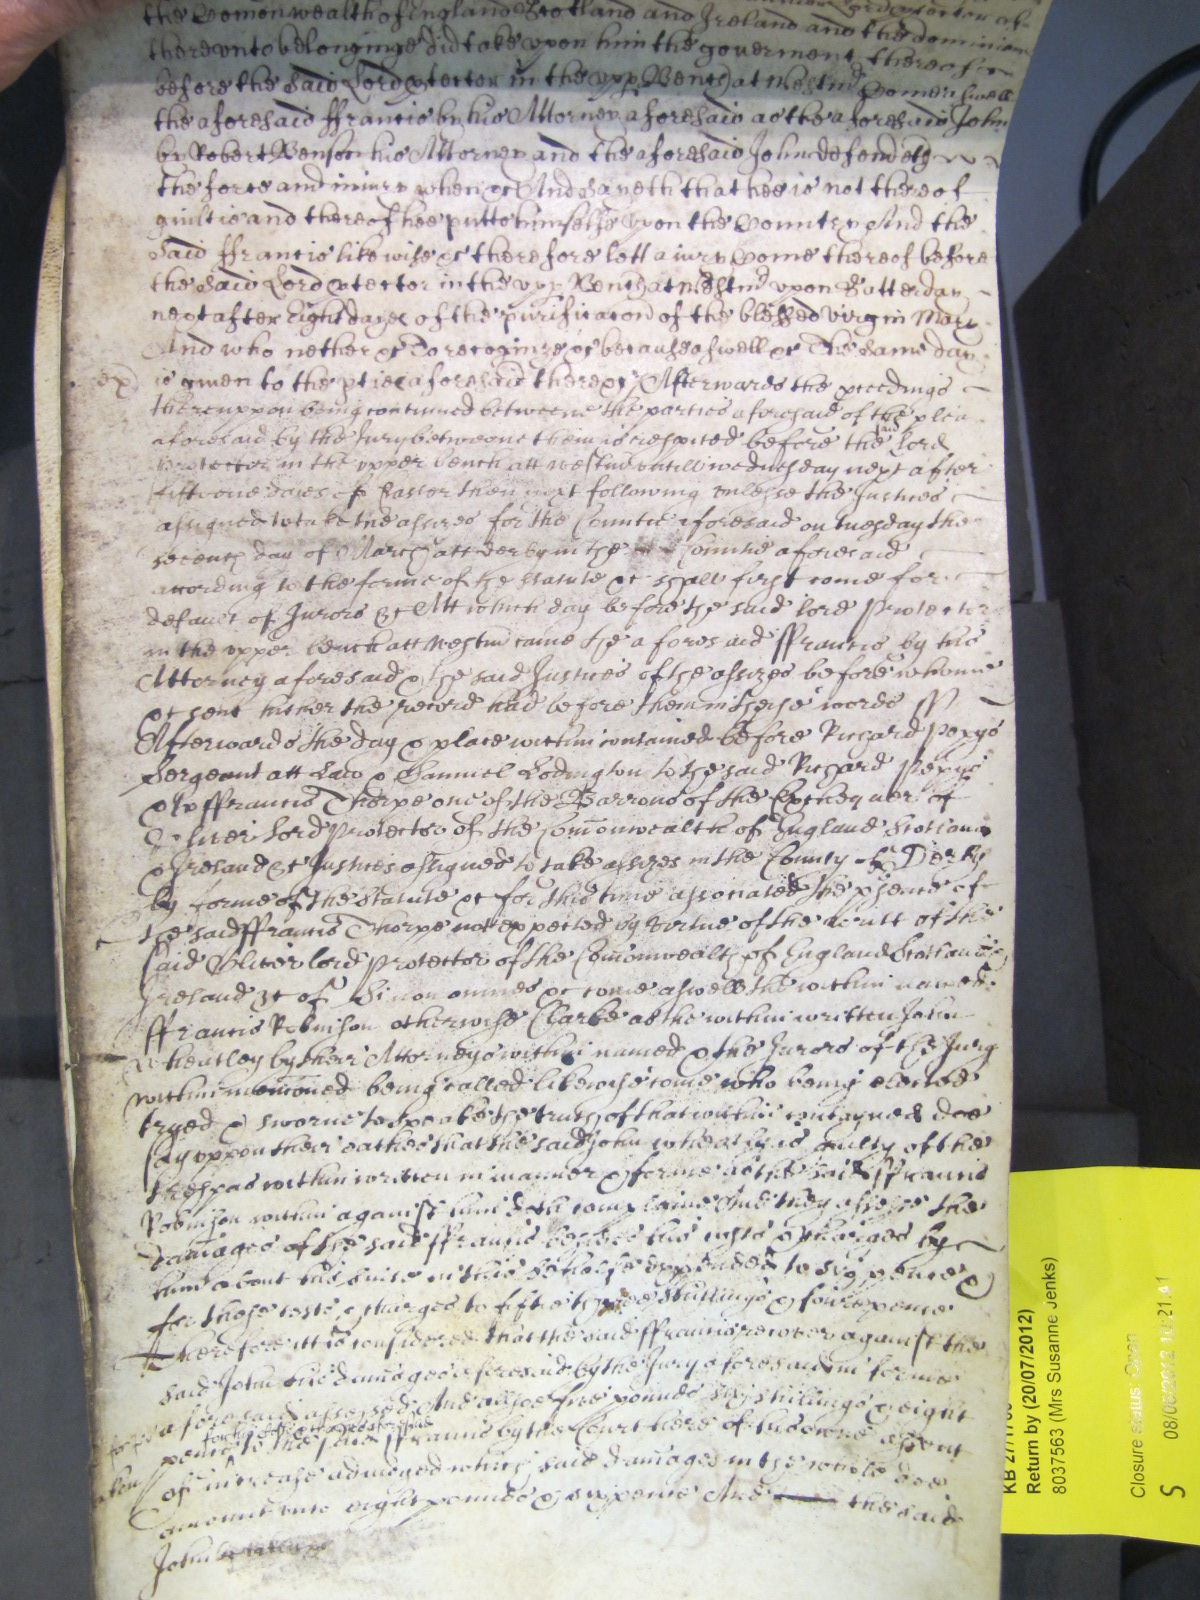 the Comonwealth of England Scotland and Ireland and the dominions
therevnto belonginge did take vpon him the goverment thereof
before the said Lord ptector in the vpp Bench at Westm Comes aswell
the aforesaid ffrancis by his Attorney aforesaid as the aforesaid John
by Robert Benson his Attorney and the aforesaid John defendeth
the force and iniury when &c And Sayeth that hee is not thereof
guiltie and thereof hee putts himselfe vpon the Country And the
said ffrancis likewise &c therefore lett a iury Come thereof before
the said Lord ptector in the vpp Bench at Westm vpon Satterday
next after Eight dayes of the purificacon of the blessed virgin Mary
And who nether &c To recognize &c because aswell &c The same day
is given to the pties aforesaid there &c Afterwards the pceedings
therevppon being continued betweene the parties aforesaid of the plea
aforesaid by the Jury betweene them is respited before the said Lord
Protector in the vpper bench att westm vntill wednesday next after
fifteene daies of Easter then next following vnlesse the Justices
assigned to take the assizes for the Countie aforesaid on tuesday the
day of March att derby in the Countie aforesaid
according to the forme of the statute &c shall first come for
default of Jurors &c Att which day before the said lord Protector
in the vpper bench att westm came the aforesaid ffrancis by his
Attorney aforesaid & the said Justices of the assizes before whome
&c sent hither the record had before them in these words
Afterwards the day & place within contained before Richard Pepys
Sergeant att Law & Samuel Lodington to the said Richard Pepys
& to ffrancis Thorpe one of the Barrons of the Exchequer of
Oliver lord Protector of the Comonwealth of England Scotland
& Ireland &c Justices assigned to take assizes in the County of Derby
by forme of the statute &c for this time associated the psence of
the said ffrancis Thorpe not expected by vertue of the writt of the
said Oliver lord Protector of the Comonwealth of England Scotland &
Ireland &c of Si non omnes &c come aswell the within named
ffrancis Robinson otherwise Clarke as the within written John
Wheatley by their Attorneys within named & the Jurors of the Jury
within mencioned being called likewise come who being elected
tryed & sworne to speake the truth of that within contayned doe
say vppon their oathes that the said John Wheatley is guilty of the
trespas within written in manner & forme as the said ffrancis
Robinson within against him doth complaine And they assesse the
damages of the said ffrancis besides his costs & charges by
him about his suite in this behalfe expended to six pence &
for those costs & charges to fiftie three shillings & foure pence
Therefore itt is considered that the said ffrancis recover against the
said John his damages aforesaid by the Jury aforesaid in forme
aforesaid assessed And allsoe five pounds six shillings & eight
pence to the said ffrancis by the Court here of his owne assent
for his costs & charges
of increase adiudged which said damages in the whole doe
amount vnto eight pounds & sixpence And the said
John
Return by (20/07/2012)
8037563 (Mrs Susanne Jenks)
Closure status Open
S